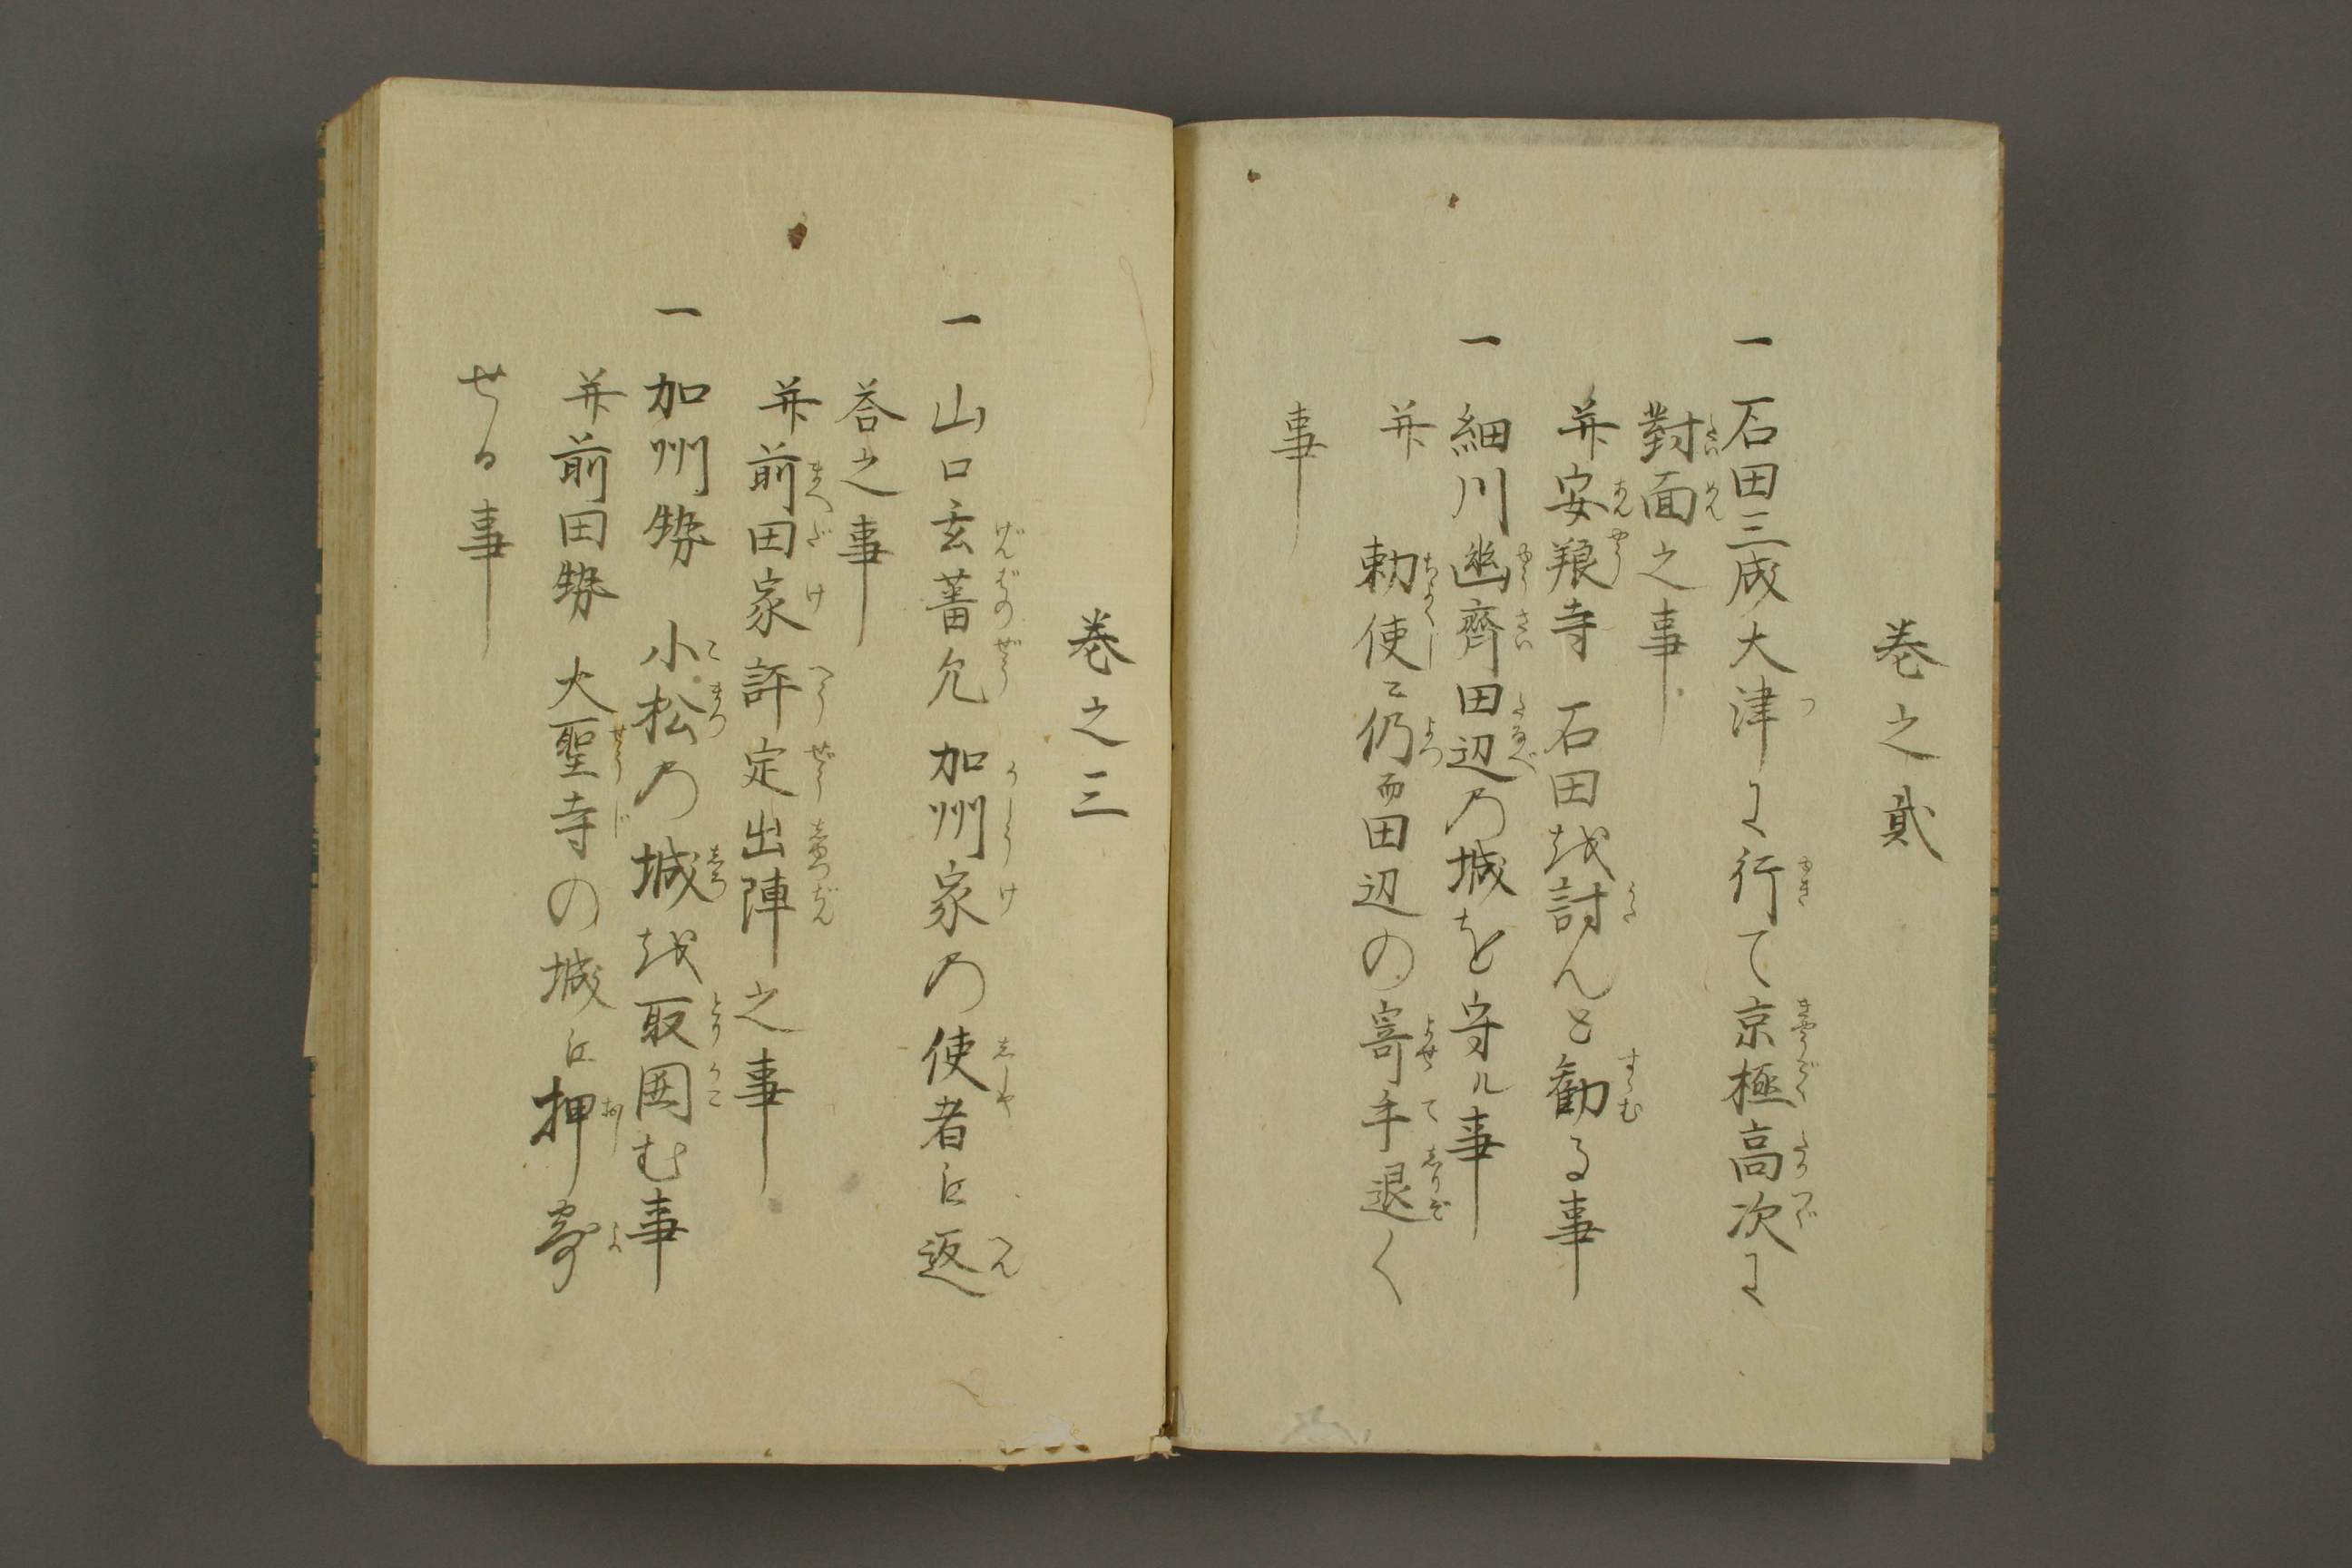 巻之貳
一 石田三成大津に行て京極高次に
對面之事
并安養寺 石田を討んと勧る事
一 細川幽齊田辺の城を守ル事
并 勅使ニ仍而田辺の寄手退く
事
巻之三
一 山口玄蕃允 加州家の使者に返
答之事
并前田家評定出陣之事
一 加州勢 小松の城を取囲む事
并前田勢 大聖寺の城に押寄
せる事